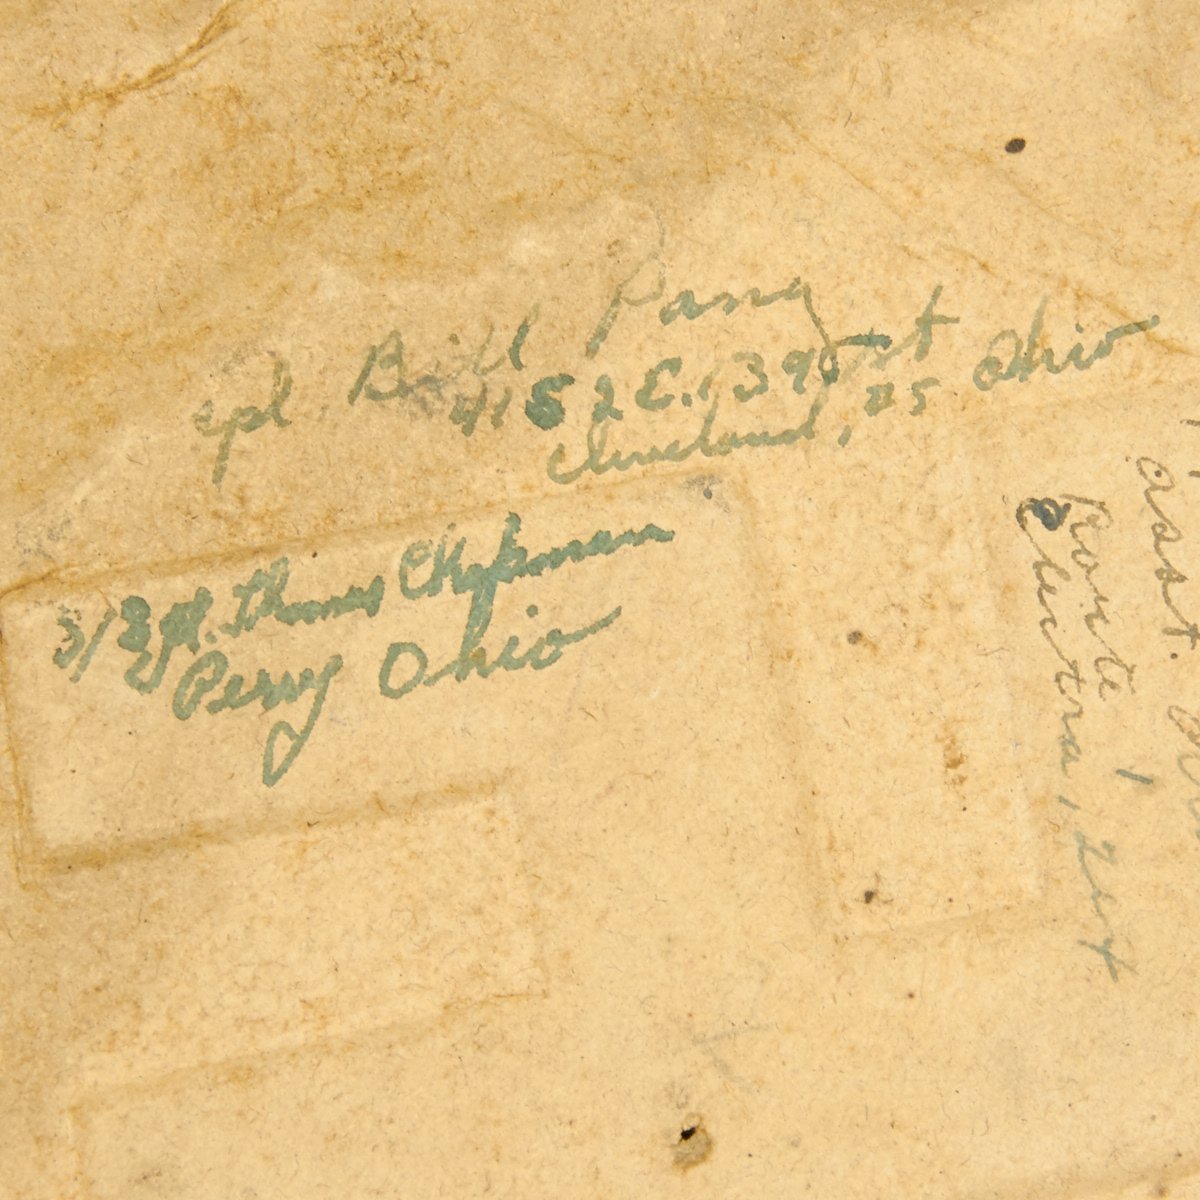 cpl Bill Pang
4152 E. 139 st
Cleveland, 25 Ohio
Thomas Chapman
Perry Ohio
asst.
Route 1
Electra, Tex